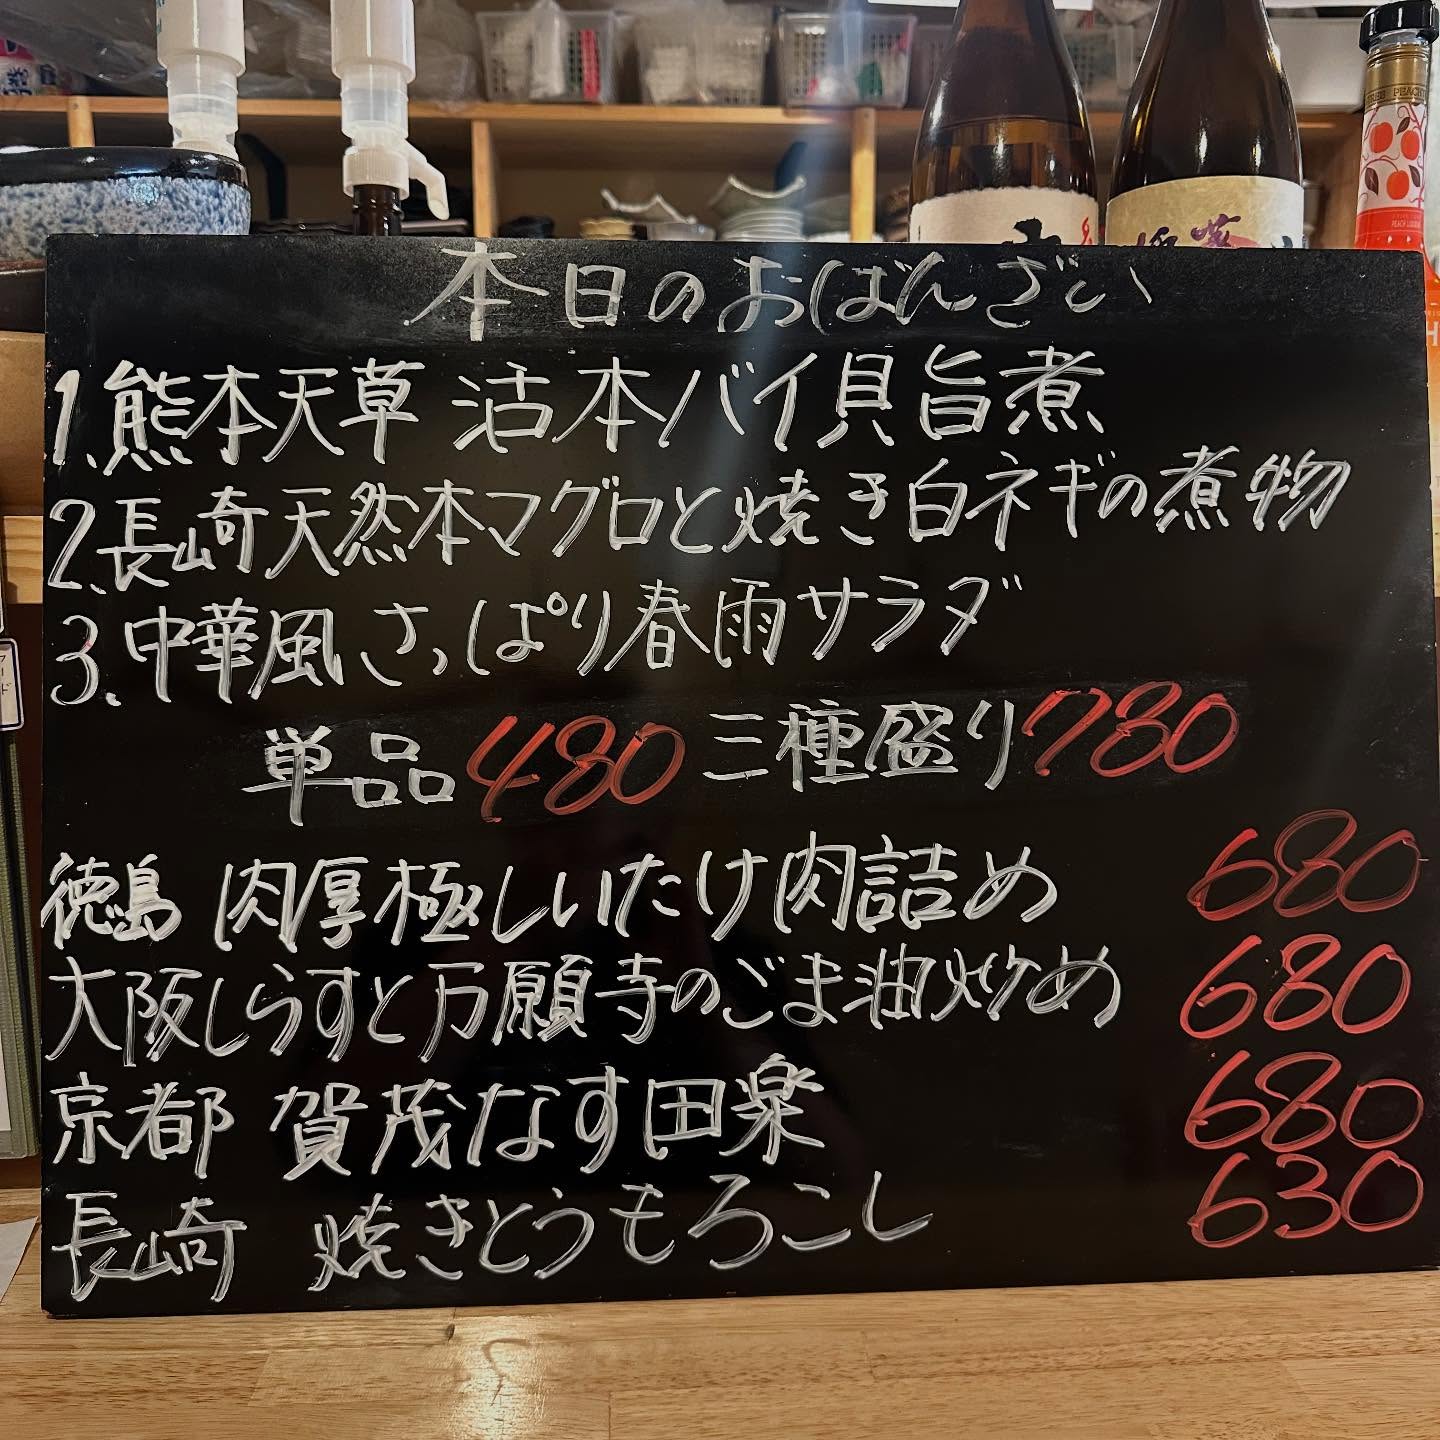 本日のおばんざい
1.熊本天草 活本バイ貝旨煮
2.長崎天然本マグロと焼き白ネギの煮物
3.中華風さっぱり春雨サラダ
単品480 三種盛り780
徳島 肉厚極しいたけ肉詰め 680
大阪しらすと万願寺のごま油炒め 680
京都 賀茂なす田楽 680
長崎 焼きとうもろこし 630